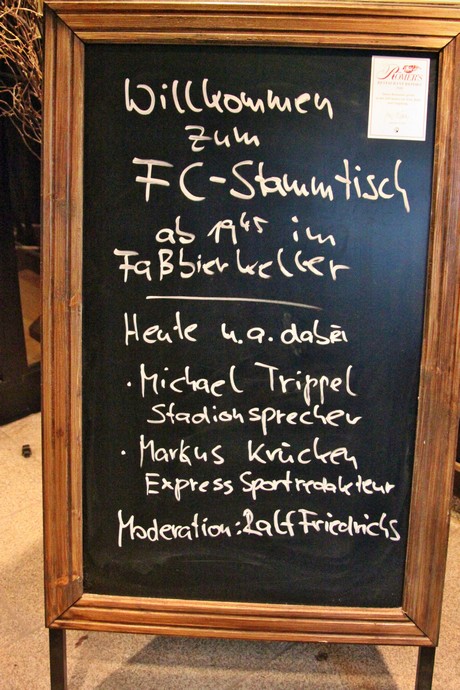 Willkommen
zum
FC-Stammtisch
ab 19⁴⁵ im
Faßbierkeller
Heute u.a. dabei
· Michael Trippel
Stadionsprecher
· Markus Krücken
Express Sportredakteur
Moderation: Ralf Friedrichs
RÖMER'S